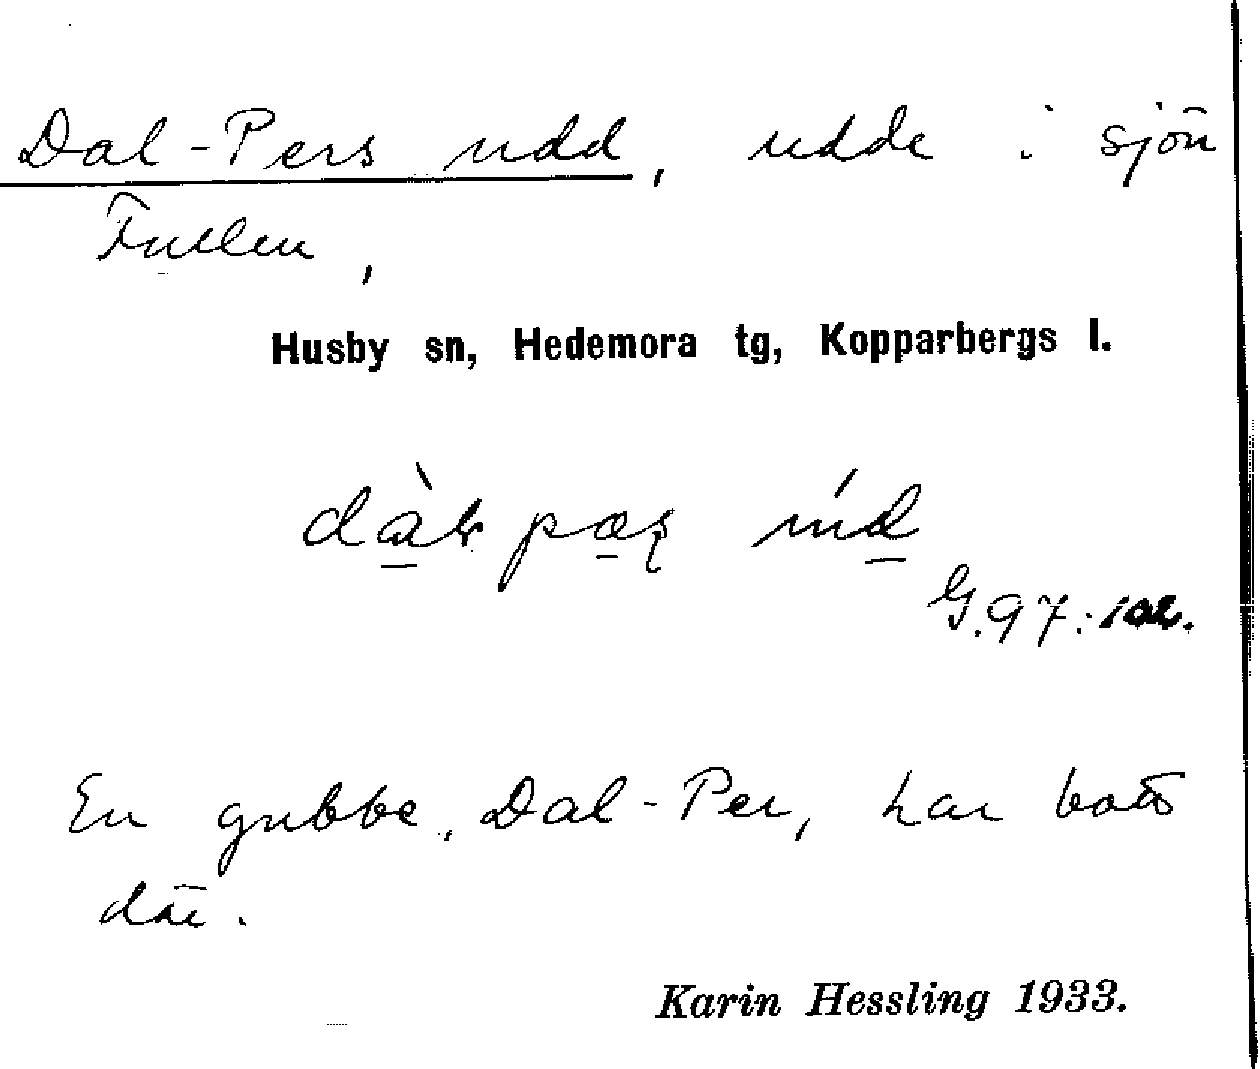 Dal-Pers udd, udde i sjön
Fullen,
Husby sn, Hedemora tg, Kopparbergs l.
G.97:102.
En gubbe, Dal-Per, har bott
där.
Karin Hessling 1933.